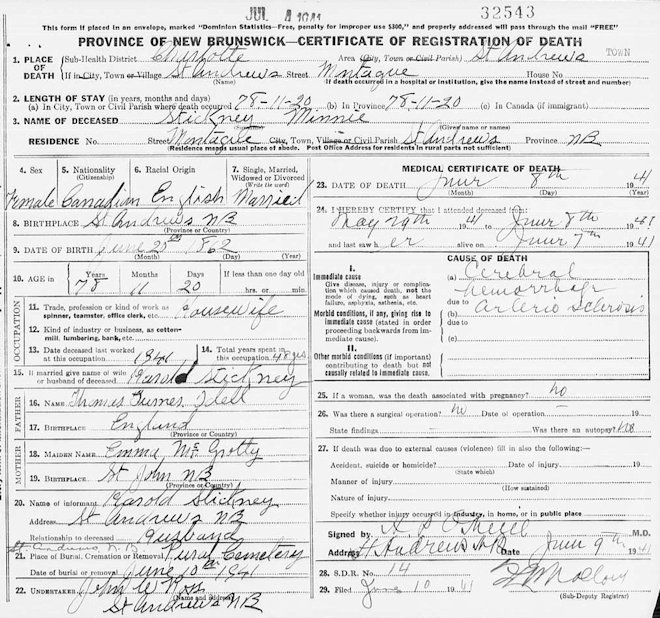 JUL 4 1941
32543
This form if placed in an envelope, marked "Dominion Statistics—Free, penalty for improper use $300," and properly addressed will pass through the mail "FREE"
PROVINCE OF NEW BRUNSWICK—CERTIFICATE OF REGISTRATION OF DEATH
1. PLACE OF DEATH
Sub-Health District Charlotte Area (City, Town or Civil Parish) St Andrews TOWN
If in City, Town or Village St Andrews Street Montague House No.
(Name) (If death occurred in a hospital or institution, give the name instead of street and number)
2. LENGTH OF STAY (in years, months and days)
(a) In City, Town or Civil Parish where death occurred 78-11-20 (b) In Province 78-11-20 (c) In Canada (if immigrant)
3. NAME OF DECEASED Stickney Minnie
(Surname) (Given name or names)
RESIDENCE No. Street Montague City, Town, Village or Civil Parish St Andrews Province NB
(Residence means usual place of abode. Post Office Address for residents in rural parts not sufficient)
4. Sex Female
5. Nationality (Citizenship) Canadian
6. Racial Origin English
7. Single, Married, Widowed or Divorced (Write the word) Married
8. BIRTHPLACE St Andrews NB
(Province or Country)
9. DATE OF BIRTH June 20th 1862
(Month) (Day) (Year)
10. AGE in Years 78 Months 11 Days 20 If less than one day hrs. or min.
OCCUPATION
11. Trade, profession or kind of work as spinner, teamster, office clerk, etc. Housewife
12. Kind of industry or business, as cotton-mill, lumbering, bank, etc.
13. Date deceased last worked at this occupation 1941
14. Total years spent in this occupation 48 yrs
15. If married give name of wife or husband of deceased Harold Stickney
FATHER
16. NAME Thomas Turner Odell
17. BIRTHPLACE England
(Province or Country)
MOTHER
18. MAIDEN NAME Emma McGrotty
19. BIRTHPLACE St John NB
(Province or Country)
20. Name of informant Harold Stickney
Address St Andrews NB
Relationship to deceased Husband
St. Andrews, N.B.
21. Place of Burial, Cremation or Removal Rural Cemetery
Date of burial or removal June 10th 1941
22. UNDERTAKER John W Ross
(Name and address)
St Andrews NB
MEDICAL CERTIFICATE OF DEATH
23. DATE OF DEATH June 8th 1941
(Month) (Day) (Year)
24. I HEREBY CERTIFY that I attended deceased from:
May 29th 1941 to June 8th 1941
and last saw her alive on June 7th 1941
CAUSE OF DEATH
I.
Immediate cause (a) Cerebral
Give disease, injury or complication which caused death, not the mode of dying, such as heart failure, asphyxia, asthenia, etc.
hemorrhage
due to Arterio sclerosis
Morbid conditions, if any, giving rise to immediate cause (stated in order proceeding backwards from immediate cause) (b)
due to
(c)
II.
Other morbid conditions (if important) contributing to death but not causally related to immediate cause
25. If a woman, was the death associated with pregnancy? no
26. Was there a surgical operation? no Date of operation — 19
State findings Was there an autopsy? no
27. If death was due to external causes (violence) fill in also the following:—
Accident, suicide or homicide? Date of injury 19
(State which)
Manner of injury
(How sustained)
Nature of injury
Specify whether injury occurred in industry, in home, or in public place
Signed by M.D.
Address St Andrews NB Date June 9th 1941
28. S.D.R. No. 14
29. Filed June 10 1941
(Sub-Deputy Registrar)